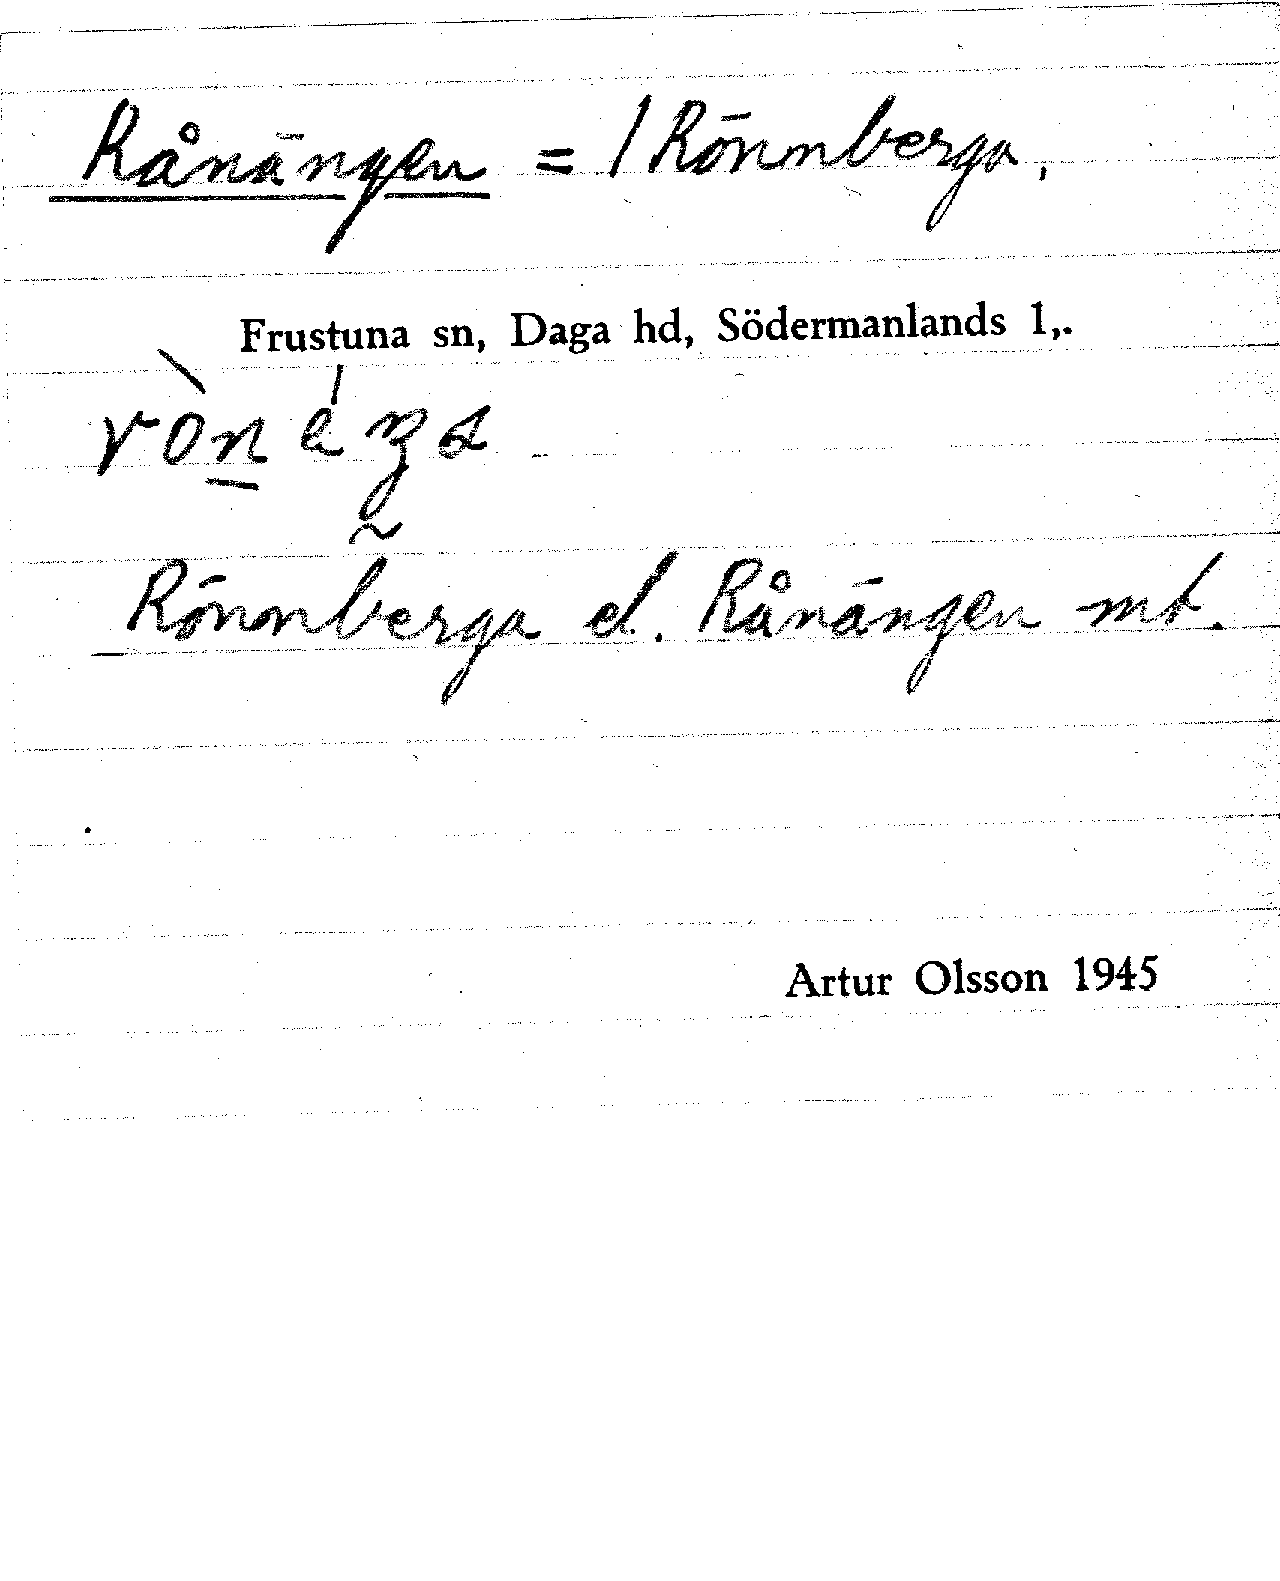 Rånängen = / Rönnberga,
Frustuna sn, Daga hd, Södermanlands l,.
Rönnberga el. Rånängen mt.
Artur Olsson 1945